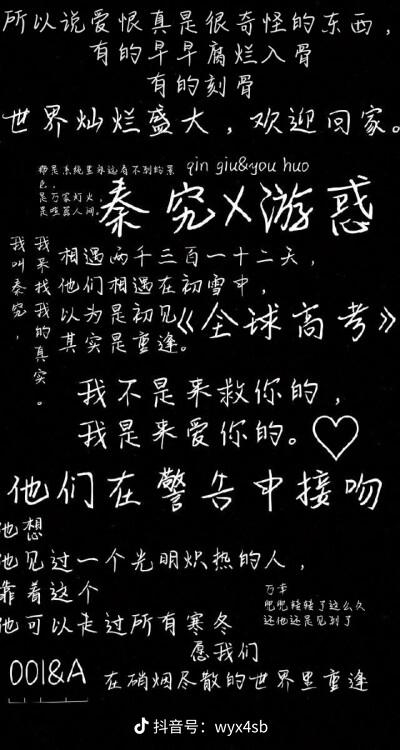 所以说爱恨真是很奇怪的东西，
有的早早腐烂入骨
有的刻骨
世界灿烂盛大，欢迎回家。
那是系统里永远看不到的景色，
是万家灯火，
是喧嚣人间。
qin giu&you huo
秦究X游惑
我叫秦究，
我来找我的真实。
相遇两千三百一十二天，
他们相遇在初雪中，
以为是初见
其实是重逢。
《全球高考》
我不是来救你的，
我是来爱你的。
他们在警告中接吻
他想
他见过一个光明炽热的人，
靠着这个
他可以走过所有寒冬
万幸
兜兜转转了这么久
还他还是见到了
愿我们
001&A
在硝烟尽散的世界里重逢
抖音号：wyx4sb